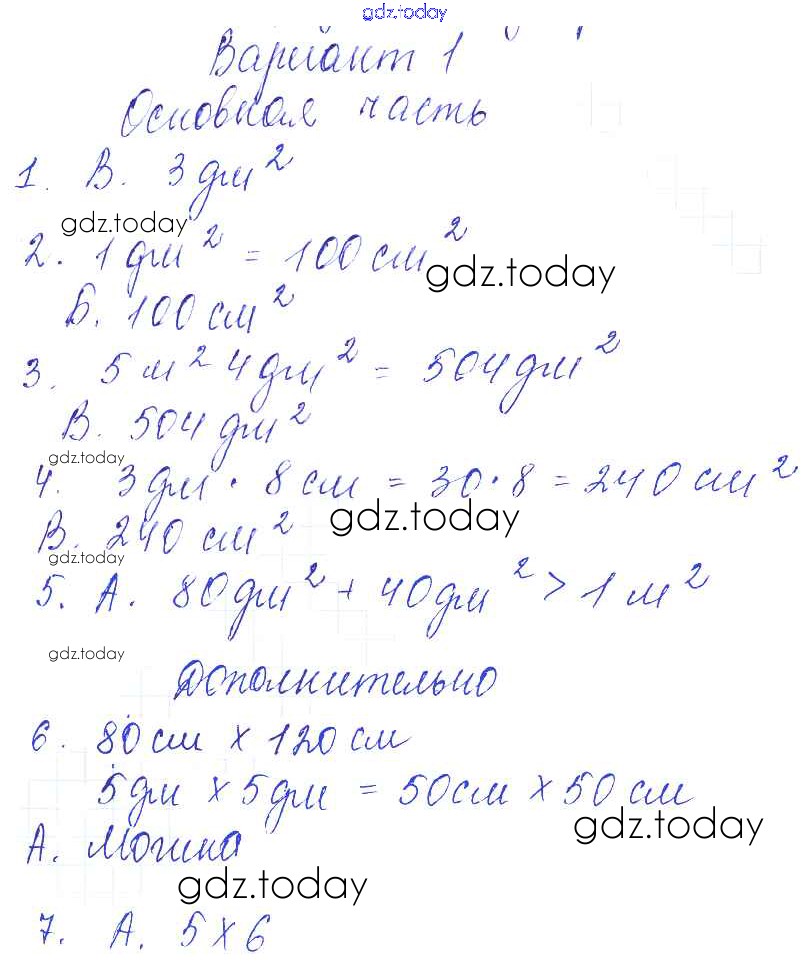 gdz.today
Вариант 1
Основная часть
1. В. 3 дм²
gdz.today
2. 1 дм² = 100 см²
gdz.today
Б. 100 см²
3. 5 м² 4 дм² = 504 дм²
В. 504 дм²
gdz.today
4. 3 дм · 8 см = 30 · 8 = 240 см²
gdz.today
В. 240 см²
gdz.today
5. А. 80 дм² + 40 дм² > 1 м²
gdz.today
Дополнительно
6. 80 см х 120 см
5 дм х 5 дм = 50 см х 50 см
gdz.today
А. Могила
gdz.today
7. А. 5 х 6